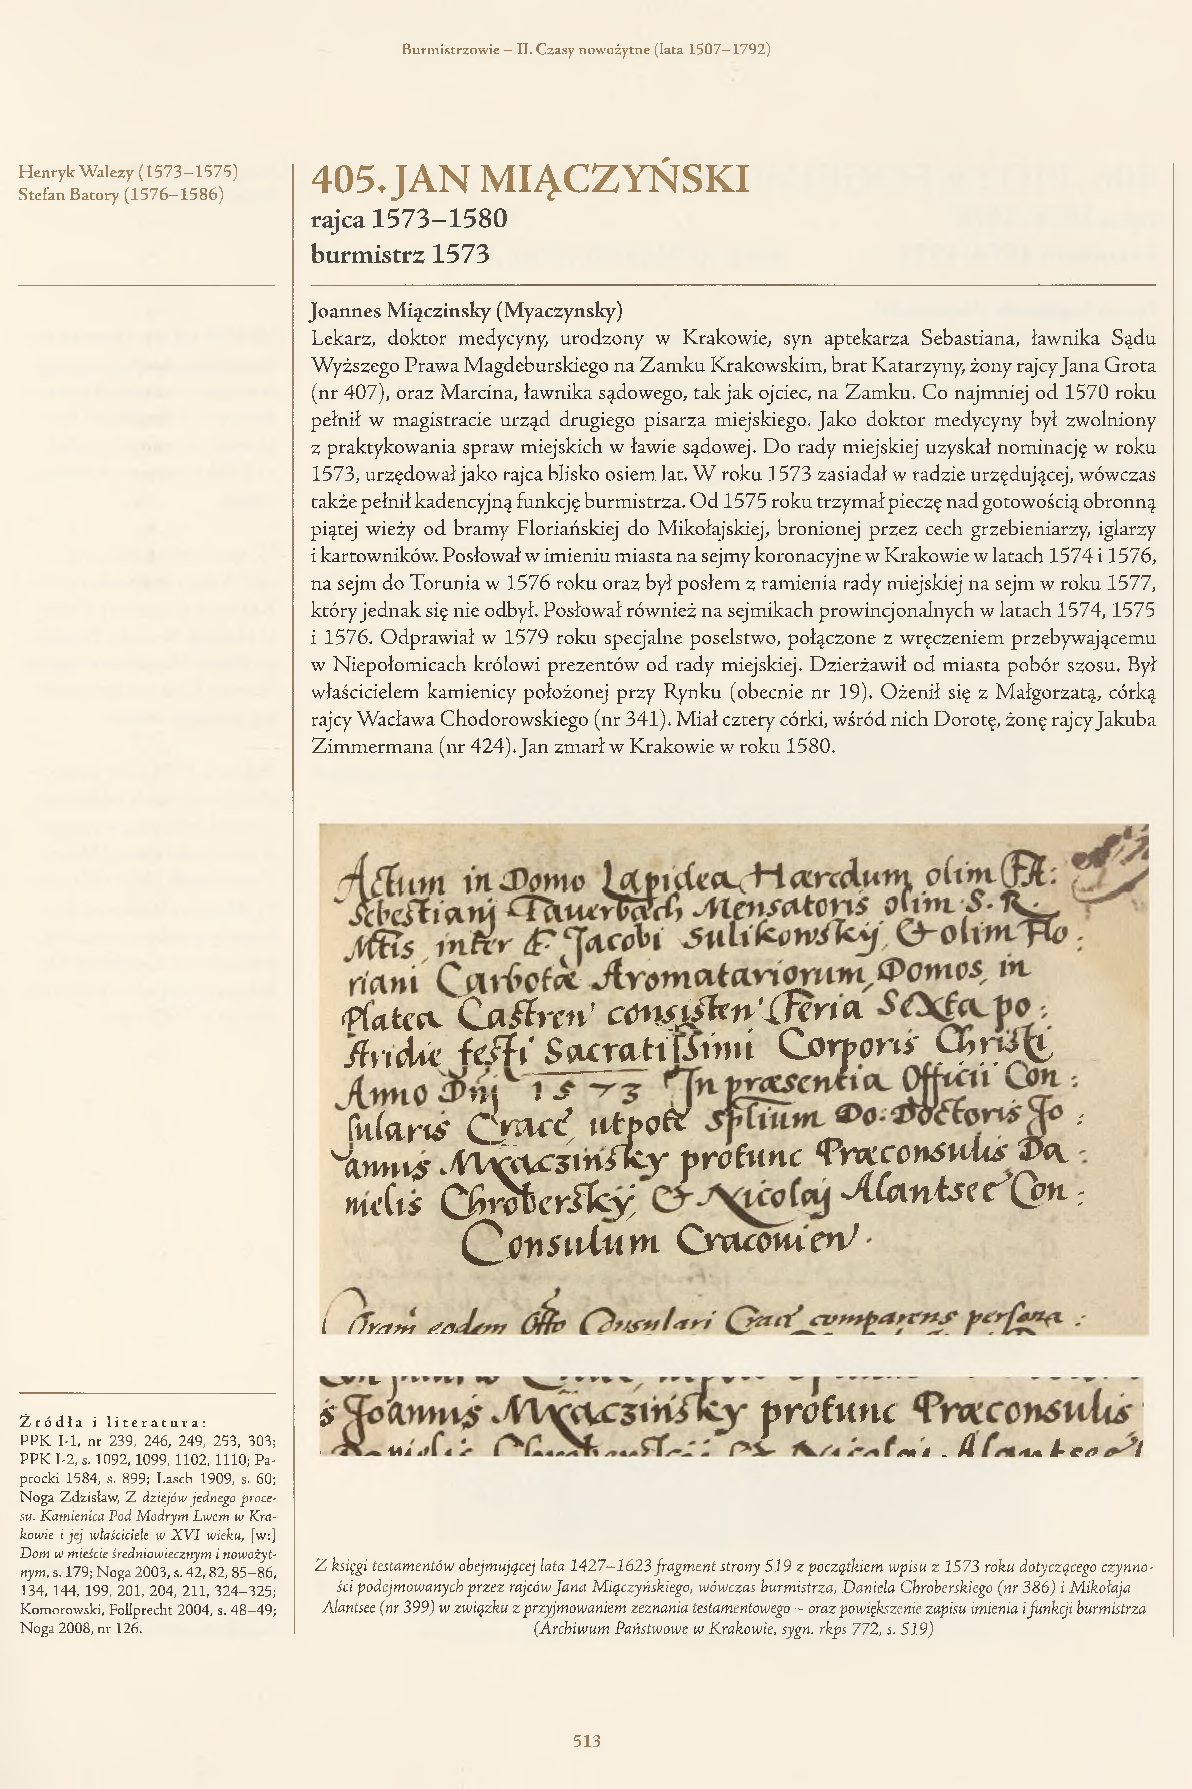 Burmistrzowie – II. Czasy nowożytne (lata 1507–1792)
Henryk Walezy (1573–1575)
Stefan Batory (1576–1586)
405. JAN MIĄCZYŃSKI
rajca 1573–1580
burmistrz 1573
Joannes Miączinsky (Myaczynsky)
Lekarz, doktor medycyny, urodzony w Krakowie, syn aptekarza Sebastiana, ławnika Sądu
Wyższego Prawa Magdeburskiego na Zamku Krakowskim, brat Katarzyny, żony rajcy Jana Grota
(nr 407), oraz Marcina, ławnika sądowego, tak jak ojciec, na Zamku. Co najmniej od 1570 roku
pełnił w magistracie urząd drugiego pisarza miejskiego. Jako doktor medycyny był zwolniony
z praktykowania spraw miejskich w ławie sądowej. Do rady miejskiej uzyskał nominację w roku
1573, urzędował jako rajca blisko osiem lat. W roku 1573 zasiadał w radzie urzędującej, wówczas
także pełnił kadencyjną funkcję burmistrza. Od 1575 roku trzymał pieczę nad gotowością obronną
piątej wieży od bramy Floriańskiej do Mikołajskiej, bronionej przez cech grzebieniarzy, iglarzy
i kartowników. Posłował w imieniu miasta na sejmy koronacyjne w Krakowie w latach 1574 i 1576,
na sejm do Torunia w 1576 roku oraz był posłem z ramienia rady miejskiej na sejm w roku 1577,
który jednak się nie odbył. Posłował również na sejmikach prowincjonalnych w latach 1574, 1575
i 1576. Odprawiał w 1579 roku specjalne poselstwo, połączone z wręczeniem przebywającemu
w Niepołomicach królowi prezentów od rady miejskiej. Dzierżawił od miasta pobór szosu. Był
właścicielem kamienicy położonej przy Rynku (obecnie nr 19). Ożenił się z Małgorzatą, córką
rajcy Wacława Chodorowskiego (nr 341). Miał cztery córki, wśród nich Dorotę, żonę rajcy Jakuba
Zimmermana (nr 424). Jan zmarł w Krakowie w roku 1580.
Actum in Domo Lapidea Hæredum olim FA:
Sebestiani Tauerbach Mensatoris olim S. R.
Mtis, inter F. Jacobi Sulikowsky, & olim Flo:
riani Carbotæ Aromatariorum Domos, in
Platea Castren' consisten' Feria Sexta po:
stridie festi Sacratissimi Corporis Christi
Anno Dni 1573 In præsentia Officii Con:
sularis Cracc, utpote Sptium Do: Doctoris Jo:
annis Myączinsky protunc Præconsulis Da:
nielis Chrobersky, & Nicolaj Alantsee Con:
Consulum Cracouien'.
Coram eodem Offo Consulari Cracc comparens persona:
s Joannis Myączinsky protunc Præconsulis
Źródła i literatura:
PPK I-1, nr 239, 246, 249, 253, 303;
PPK I-2, s. 1092, 1099, 1102, 1110; Pa-
procki 1584, s. 899; Lasch 1909, s. 60;
Noga Zdzisław, Z dziejów jednego proce-
su. Kamienica Pod Modrym Lwem w Kra-
kowie i jej właściciele w XVI wieku, [w:]
Dom w mieście średniowiecznym i nowożyt-
nym, s. 179; Noga 2003, s. 42, 82, 85–86,
134, 144, 199, 201, 204, 211, 324–325;
Komorowski, Follprecht 2004, s. 48–49;
Noga 2008, nr 126.
Z księgi testamentów obejmującej lata 1427–1623 fragment strony 519 z początkiem wpisu z 1573 roku dotyczącego czynno-
ści podejmowanych przez rajców Jana Miączyńskiego, wówczas burmistrza, Daniela Chroberskiego (nr 386) i Mikołaja
Alantsee (nr 399) w związku z przyjmowaniem zeznania testamentowego – oraz powiększenie zapisu imienia i funkcji burmistrza
(Archiwum Państwowe w Krakowie, sygn. rkps 772, s. 519)
513